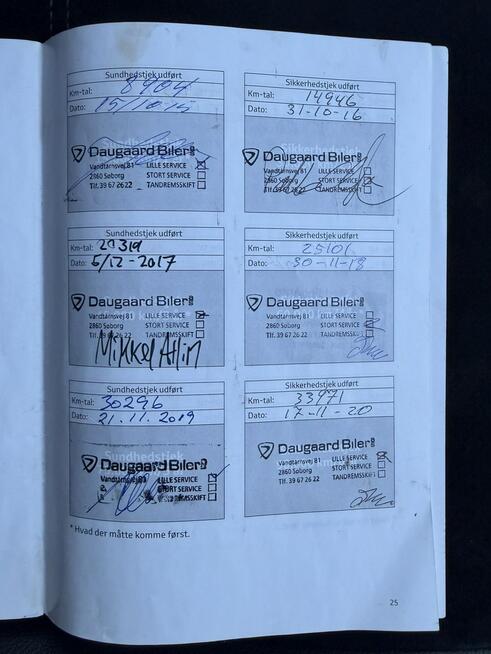 Sundhedstjek udført
Km-tal: 8404
Dato: 15/10-15
Sundhedstjek
Daugaard Biler
Vandtårnsvej 81 LILLE SERVICE
2860 Søborg STORT SERVICE
Tlf. 39 67 26 22 TANDREMSSKIFT
Sikkerhedstjek udført
Km-tal: 14946
Dato: 31-10-16
Sikkerhedstjek
Daugaard Biler
Vandtårnsvej 81 LILLE SERVICE
2860 Søborg STORT SERVICE
Tlf. 39 67 26 22 TANDREMSSKIFT
Sundhedstjek udført
Km-tal: 20319
Dato: 5/12-2017
Daugaard Biler
Vandtårnsvej 81 LILLE SERVICE
2860 Søborg STORT SERVICE
Tlf. 39 67 26 22 TANDREMSSKIFT
Mikkel
Sikkerhedstjek udført
Km-tal: 25101
Dato: 30-11-18
Daugaard Biler
Vandtårnsvej 81 LILLE SERVICE
2860 Søborg STORT SERVICE
Tlf. 39 67 26 22 TANDREMSSKIFT
Sundhedstjek udført
Km-tal: 30296
Dato: 21.11.2019
Sundhedstjek
Daugaard Biler
Vandtårnsvej 81 LILLE SERVICE
STORT SERVICE
TANDREMSSKIFT
Sikkerhedstjek udført
Km-tal: 33971
Dato: 17-11-20
Daugaard Biler
Vandtårnsvej 81 LILLE SERVICE
2860 Søborg STORT SERVICE
Tlf. 39 67 26 22 TANDREMSSKIFT
* Hvad der måtte komme først.
25